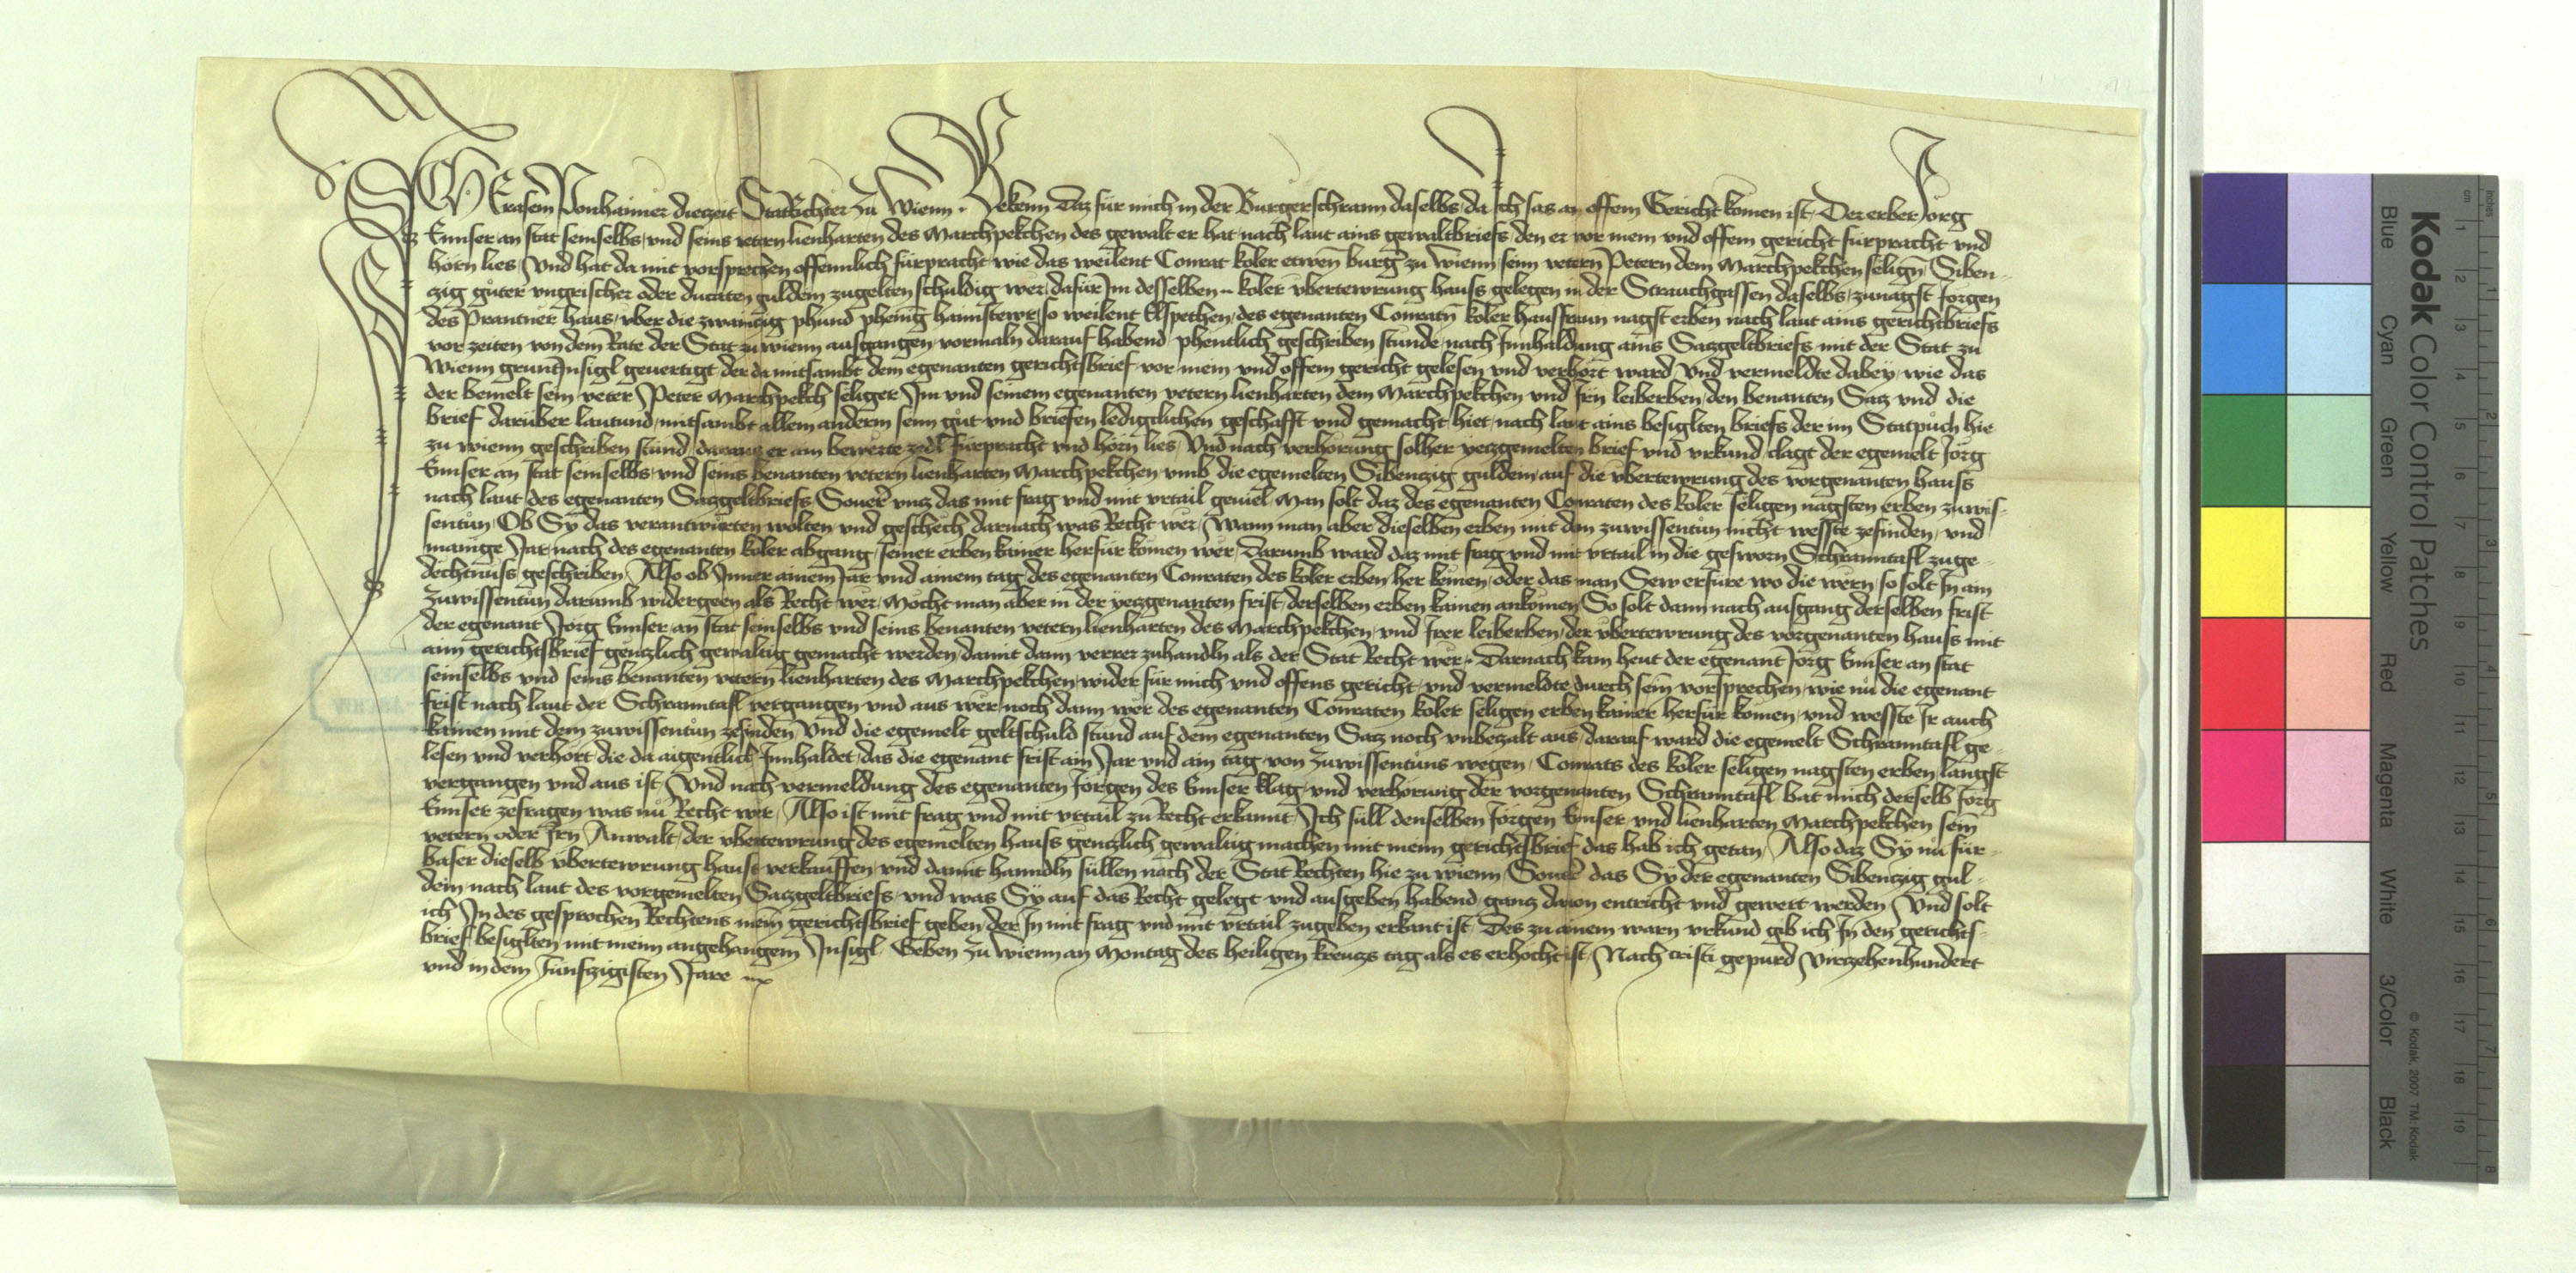 ICH Erasem Ponhaimer diezeit StatRichter zu Wienn. Bekenn daz für mich in der Burgerschrann daselbs, da ich sas an offem Gericht komen ist Der erber Jorg
Emser an stat seinselbs, vnd seins vetern lienharten des Marchpekchen des gewalt er hat, nach laut ains gewaltbriefs den er vor mein vnd offem gericht fürpracht vnd
hörn lies, Vnd hat da mit vorsprechen offennlich fürpracht, wie das weilent Conrat koler etwen burg zu wienn, seim vetern Petern dem Marchpekchen seligñ Siben-
zig guter vngrischer oder ducaten guldein zugelten schuldig wer, dafür Im desselben koler vbertewrung hauss gelegen in der Strauchgassen daselbs, zunagst Jorgen
des Prantner haus, vber die zwaintzig phund phenig haimstewr, so weilent Elspethen, des egenanten Conratñ koler hausfraun nagst erben nach laut ains gerichtbriefs
vor zeiten von dem Rate der Stat zu wienn ausgangen, vormaln darauf habend phentlich geschriben stunde, nach Innhaldung ains Sazgeltbriefs, mit der Stat zu
Wienn gruntInsigl geuertigt, der da mitsambt dem egenanten gerichtsbrief vor mein vnd offem gericht gelesen vnd verhört ward Vnd vermeldte dabey, wie das
der bemelt sein veter Peter Marchpekch seliger Im vnd seinem egenanten vetern lienharten dem Marchpekchen vnd Irn leiberben, den benanten Saz vnd die
brief darüber lautund, mitsambt allem anderm seim gut vnd briefen ledigclichen geschafft vnd gemacht hiet, nach laut ains besiglten briefs der im Statpuch hie
zu wienn geschriben stund, daraus er ain bewerte zedl fürpracht vnd hörn lies, Vnd nach verhörung solher yezgemelten brief vnd vrkund, clagt der egemelt Jorg
Emser an stat seinselbs, vnd seins benanten vetern lienharten Marchpekchen, vmb die egemelten Sibenzig guldein, auf die vbertewrung des vorgenanten hauss
nach laut des egenanten Sazgeltbriefs Souer vnz das mit frag vnd mit vrtail geuiel, Man solt daz des egenanten Conraten des koler seligen nagsten erben zuwis-
sentun, Ob Sy das verantwürten wolten vnd geschech darnach was Recht wer, Wann man aber dieselben erben mit dem zuwissentun nicht wesste zefinden, vnd
manige Jar, nach des egenanten koler abgang, seiner erben kainer herfür komen wer, Darumb ward daz mit frag vnd mit vrtail in die gesworn Schranntafl zuge-
dechtnuss geschriben, Also ob Inner ainem Jar vnd ainem tag, des egenanten Conraten des koler erben her kemen, oder das man Sew erfüre wo die wern, so solt In ain
Zuwissentun darumb widergeen als Recht wer, Mocht man aber in der yezgenanten frist, derselben erben kainen ankomen So solt dann nach ausgang derselben frist
der egenant Jorg Emser, an stat seinselbs vnd seins benanten vetern lienharten des Marchpekchen, vnd Irer leiberben, der vbertewrung des vorgenanten hauss mit
aim gerichtsbrief genczlich gewaltig gemacht werden, damit dann verrer zuhandln als der Stat Recht wer. Darnach kam heut der egenant Jorg Emser an stat
seinselbs vnd seins benanten vetern lienharten des Marchpekchen, wider für mich vnd offens gericht, vnd vermeldte durch sein vorsprechen, wie nu die egenant
frist nach laut der Schranntafl vergangen vnd aus wer, noch dann wer des egenanten Conraten koler seligen erben kainer herfür komen, vnd wesste Ir auch
kainen mit dem zuwissentun zefinden, Vnd die egemelt geltschuld stund auf dem egenanten Saz noch vnbezalt aus, darauf ward die egemelt Schranntafl ge-
lesen vnd verhört die da aigentlich Innhaldet, das die egenant frist ain Jar vnd ain tag, von zuwissentuns wegen, Conrats des koler seligen nagsten erben langst
vergangen vnd aus ist, Vnd nach vermeldung des egenanten Jorgen des Emser klag, vnd verhörung der vorgenanten Schranntafl, bat mich derselb Jorg
Emser zefragen was nu Recht wer, Also ist mit frag vnd mit vrtail zu Recht erkannt, Ich sull denselben Jorgen Emser, vnd lienharten Marchpekchen sein
vetern oder Irn Anwalt, der vbertewrung des egemelten hauss genczlich gewaltig machen mit meim gerichtsbrief, das hab ich getan, Also daz Sy nu für-
baser dieselb vbertewrung hauss verkauffen, vnd damit hanndln süllen nach der Stat Rechten hie zu wienn Souer das Sy der egenanten Sibenczig gul-
dein, nach laut des vorgemelten Sazgeltbriefs, vnd was Sy auf das Recht gelegt vnd ausgeben habend, ganz dauon entricht vnd gewert werden, Vnd solt
ich In des gesprochen Rechtens mein gerichtsbrief geben, der In mit frag vnd mit vrtail zugeben erkant ist, Des zu ainem warn vrkund gib ich In den gerichts-
brief besiglten mit meim angehangem Insigl, Geben zu Wienn an Montag des heiligen kreuzs tag als es erhöcht ist, Nach cristi gepurd Virzehenhundert
vnd in dem Funfzigisten Jare
Kodak Color Control Patches
Blue Cyan Green Yellow Red Magenta White 3/Color Black
© Kodak, 2007 TM: Kodak
inches 1 2 3 4 5 6 7 8
cm 1 2 3 4 5 6 7 8 9 10 11 12 13 14 15 16 17 18 19